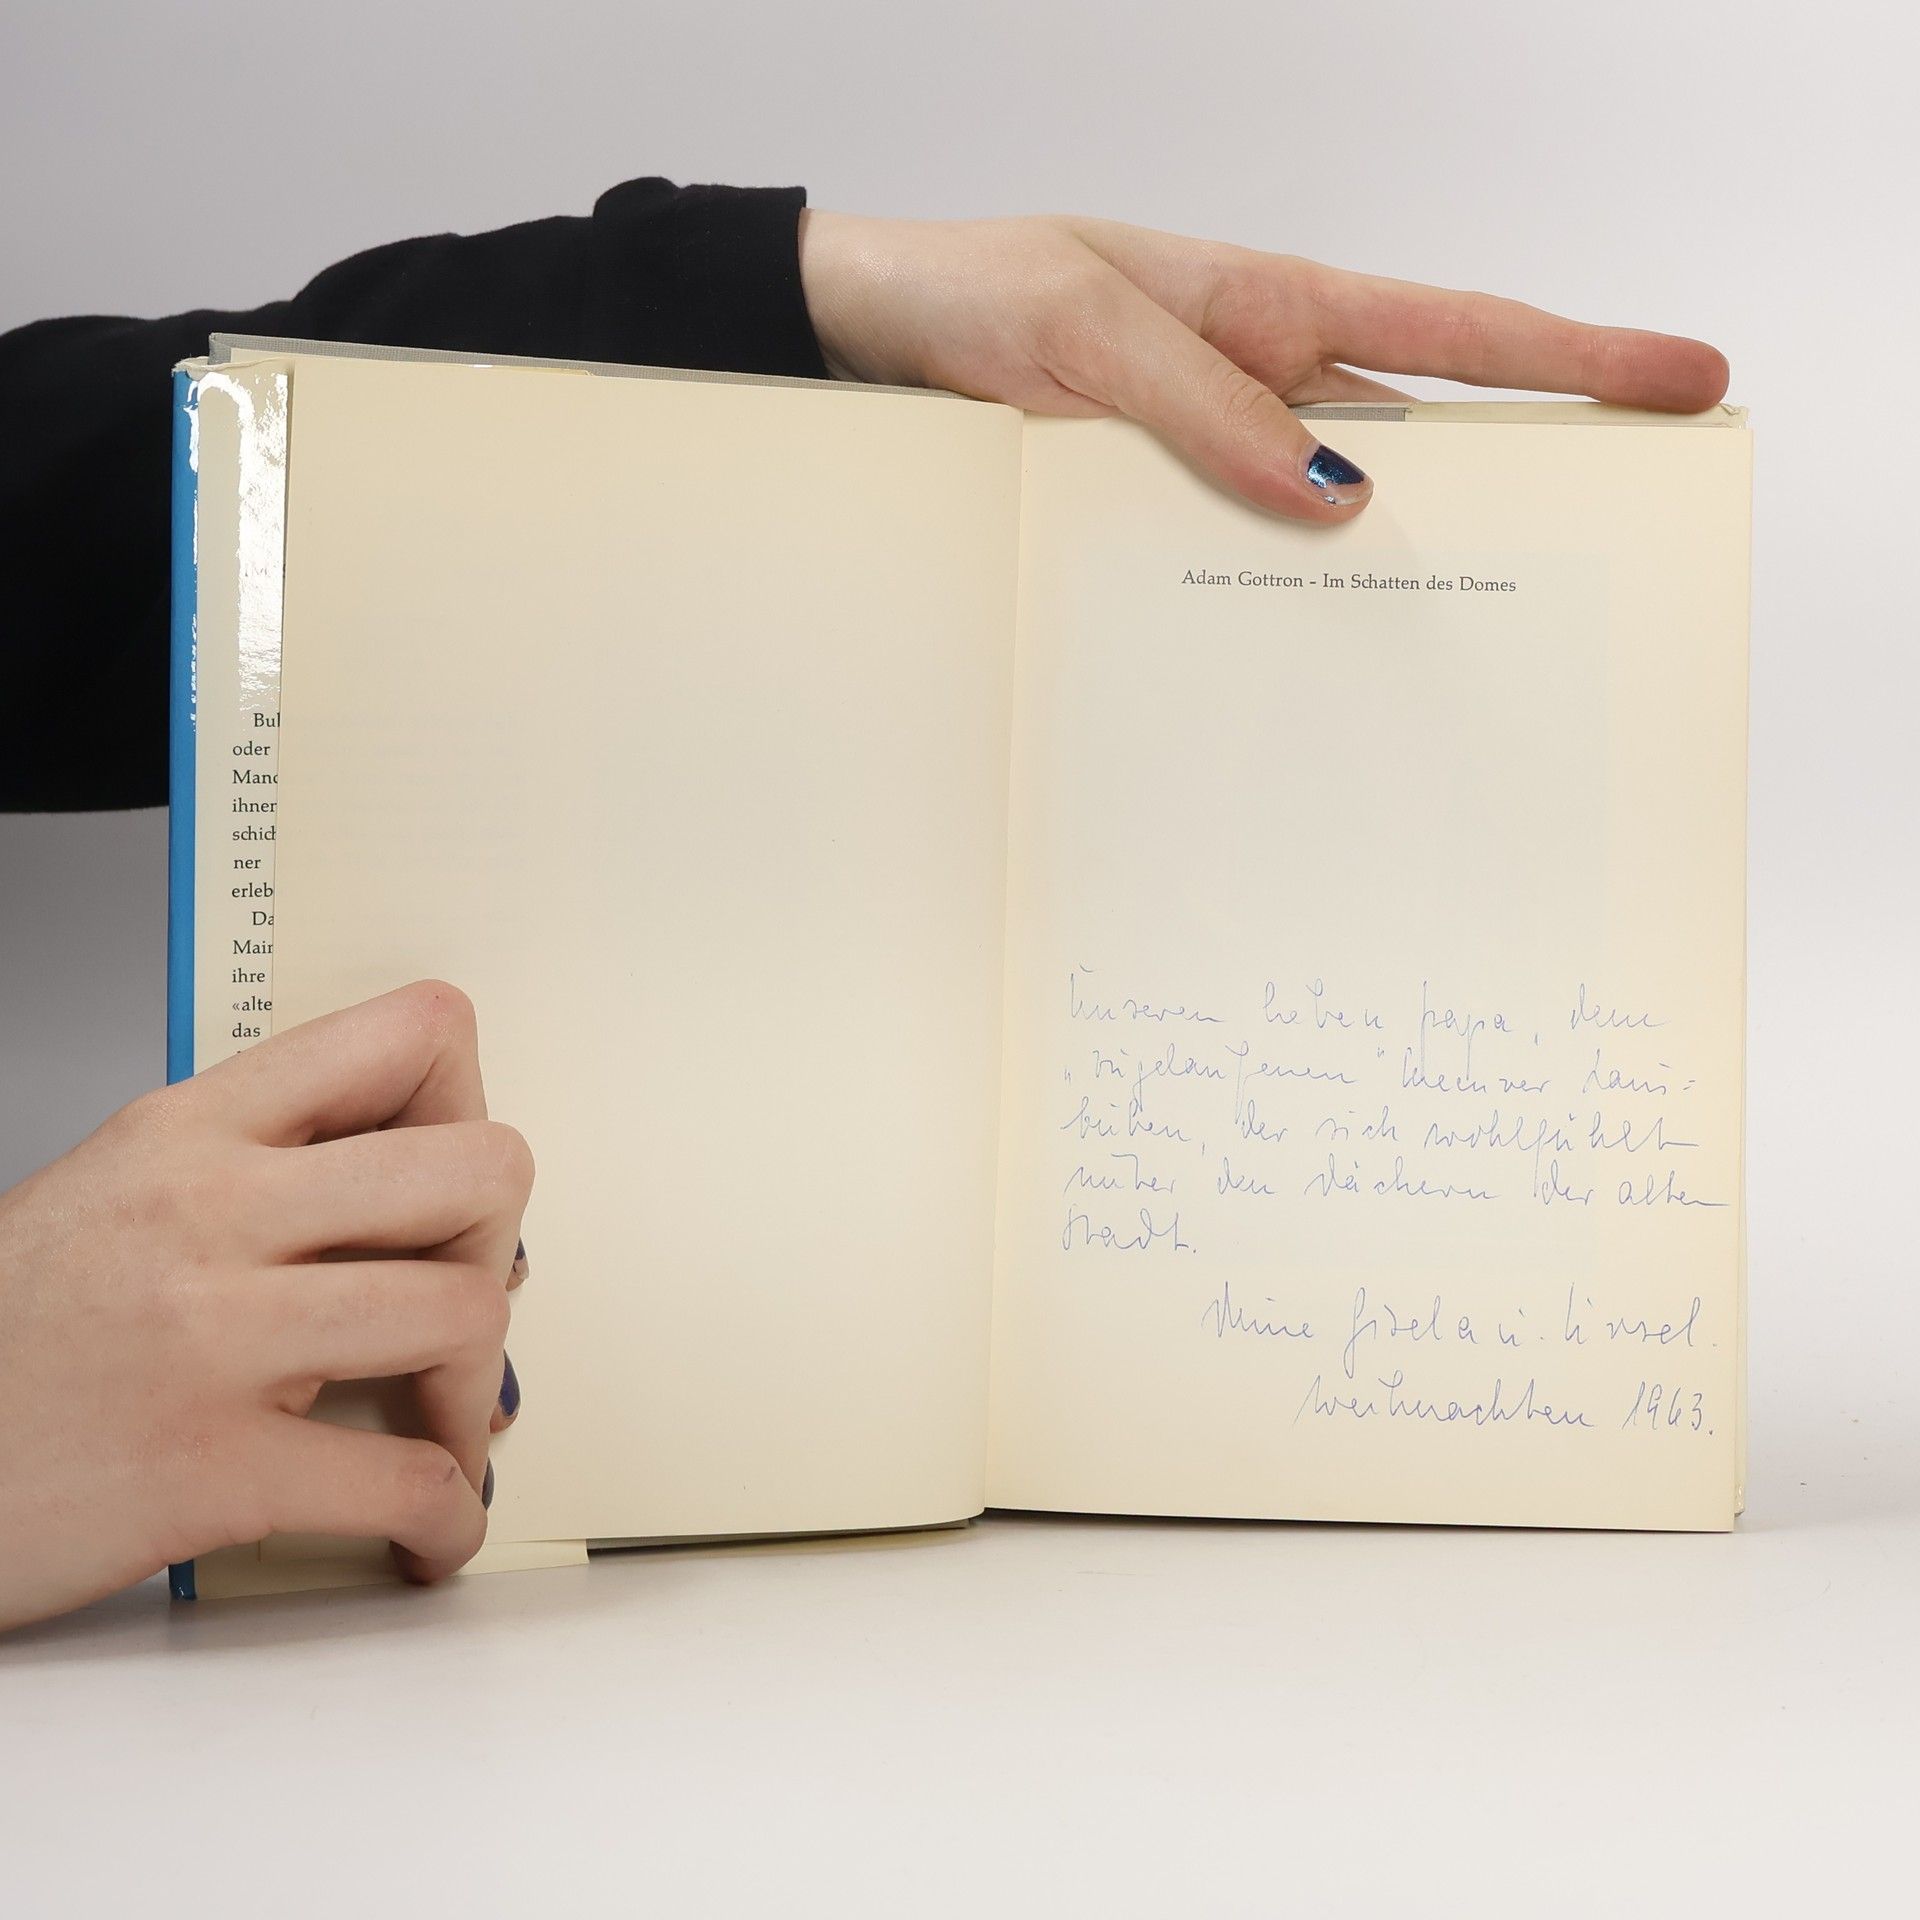 Adam Gottron - Im Schatten des Domes
Bul
oder
Manc
ihner
schich
ner
erleb
Da
Main
ihre
«alte
das
Unseren lieben Papa, dem
„zugelaufenen" Meenzer Laus=
buben, der sich wohlfühlt
unter den Dächern der alten
Stadt.
Deine Gisela u. Ursel.
Weihnachten 1963.